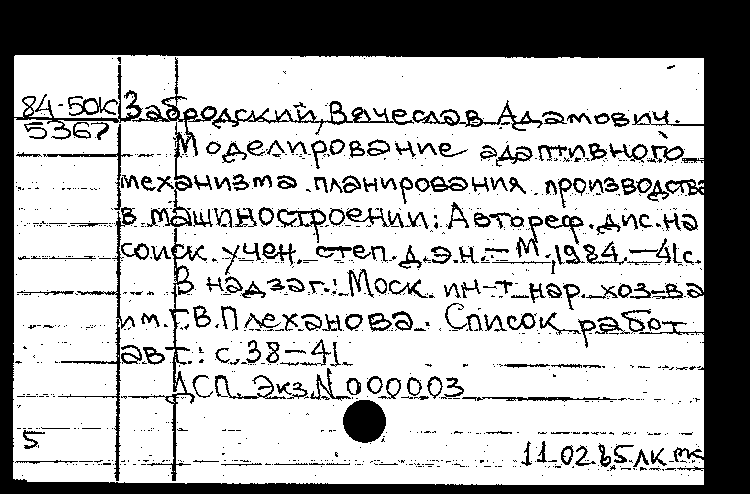 84-50к Забродский, Вячеслав Адамович.
5367
Моделирование адаптивного
механизма планирования производства
в машиностроении: Автореф. дис. на
соиск. учен. степ. д.э.н. – М., 1984. – 41 с.
В надзаг.: Моск. ин-т нар. хоз-ва
им. Г.В. Плеханова. Список работ
авт.: с. 38–41
ДСП. Экз. N 000003
5
11.02.85 ЛК тк